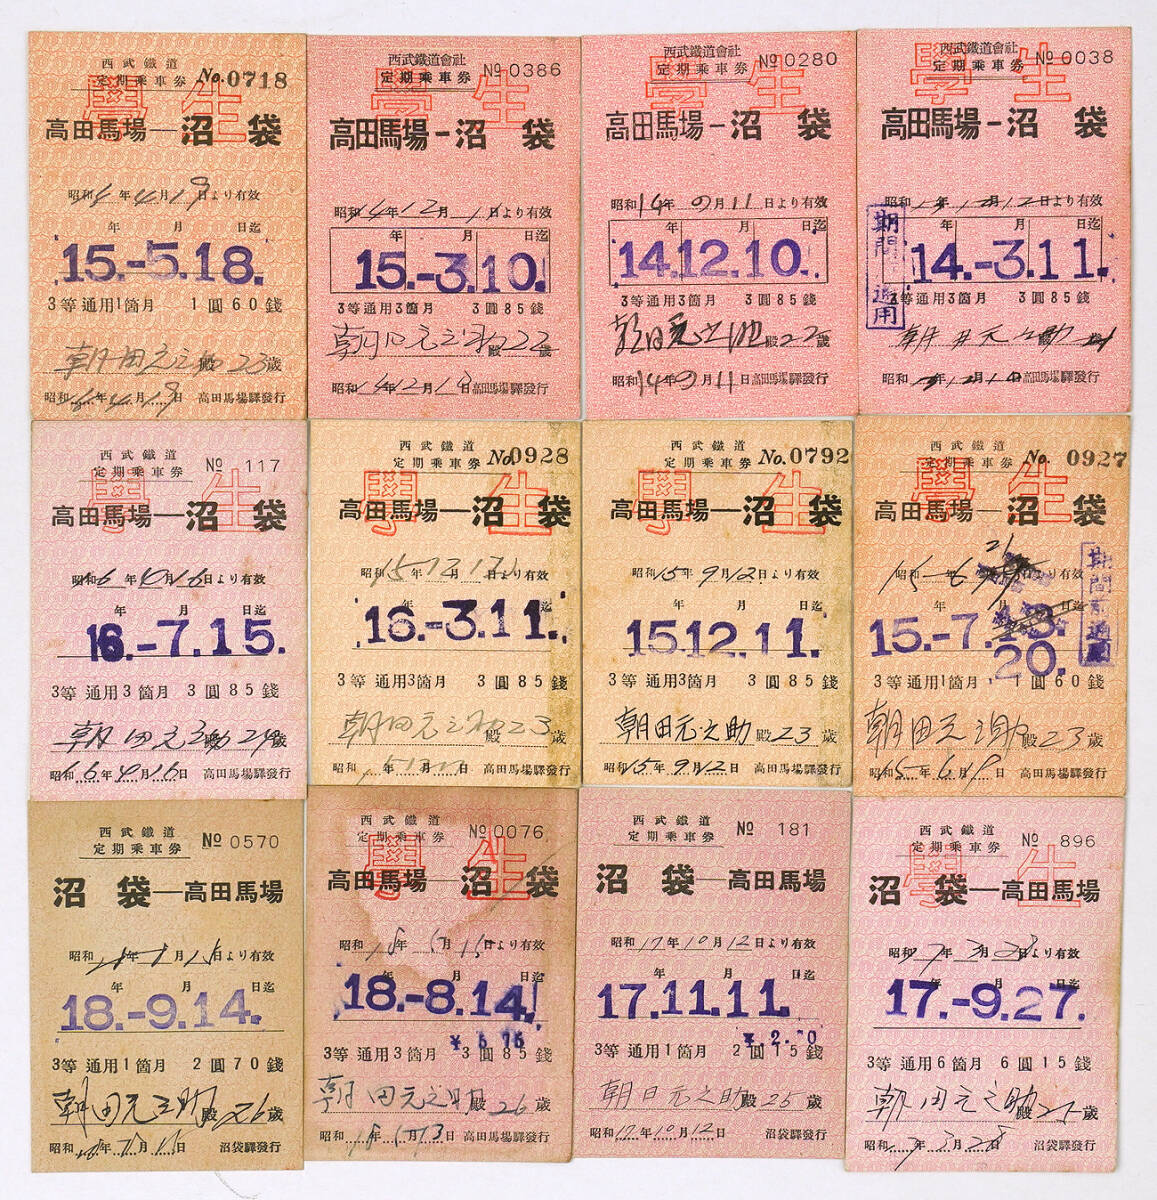 西武鐵道
定期乗車券 No.0718
學生
高田馬場―沼袋
昭和14年4月19日より有效
年 月 日迄
15.-5.18.
3等通用1箇月 1圓60錢
朝田元之助殿23歳
昭和14年4月19日 高田馬場驛發行
西武鐵道會社
定期乗車券 №0386
學生
高田馬場-沼袋
昭和14年12月11日より有效
年 月 日迄
15.-3.10.
3等通用3箇月 3圓85錢
殿22歳
高田馬場驛發行
西武鐵道會社
定期乗車券 №0280
學生
高田馬場-沼袋
昭和14年9月11日より有效
年 月 日迄
14.12.10.
3等通用3箇月 3圓85錢
殿22歳
昭和14年9月11日 高田馬場驛發行
西武鐵道會社
定期乗車券 №0038
學生
高田馬場-沼袋
日より有效
年 月 日迄
14.-3.11.
3等通用3箇月 3圓85錢
高田馬場驛發行
西武鐵道
定期乗車券 № 117
學生
高田馬場―沼袋
昭和16年4月16日より有效
年 月 日迄
16.-7.15.
3等通用3箇月 3圓85錢
朝田元之助殿24歳
昭和16年4月16日 高田馬場驛發行
西武鐵道
定期乗車券 No.0928
學生
高田馬場―沼袋
昭和15年12月12日より有效
年 月 日迄
16.-3.11.
3等通用3箇月 3圓85錢
朝田元之助殿23歳
高田馬場驛發行
西武鐵道
定期乗車券 No.0792
學生
高田馬場―沼袋
昭和15年9月12日より有效
年 月 日迄
15.12.11.
3等通用3箇月 3圓85錢
朝田元之助殿23歳
昭和15年9月12日 高田馬場驛發行
西武鐵道
定期乗車券 No.0927
學生
高田馬場―沼袋
昭和15-6 21
日より有效
年 月 日迄
15.-7.
20.
3等通用1箇月 1圓60錢
朝田元之助殿23歳
昭和15年6月19日 高田馬場驛發行
西武鐵道
定期乗車券 №0570
沼袋―高田馬場
日より有效
年 月 日迄
18.-9.14.
3等通用1箇月 2圓70錢
朝田元之助殿26歳
沼袋驛發行
西武鐵道
定期乗車券 №0076
學生
高田馬場―沼袋
昭和18年5月15日より有效
年 月 日迄
18.-8.14.
3等通用3箇月 3圓85錢
朝田元之助殿26歳
昭和18年5月13日 高田馬場驛發行
西武鐵道
定期乗車券 № 181
沼袋―高田馬場
昭和17年10月12日より有效
年 月 日迄
17.11.11.
3等通用1箇月 2圓15錢
朝田元之助殿25歳
昭和17年10月12日 沼袋驛發行
西武鐵道
定期乗車券 № 896
學生
沼袋―高田馬場
昭和17年3月28日より有效
年 月 日迄
17.-9.27.
3等通用6箇月 6圓15錢
朝田元之助殿25歳
沼袋驛發行